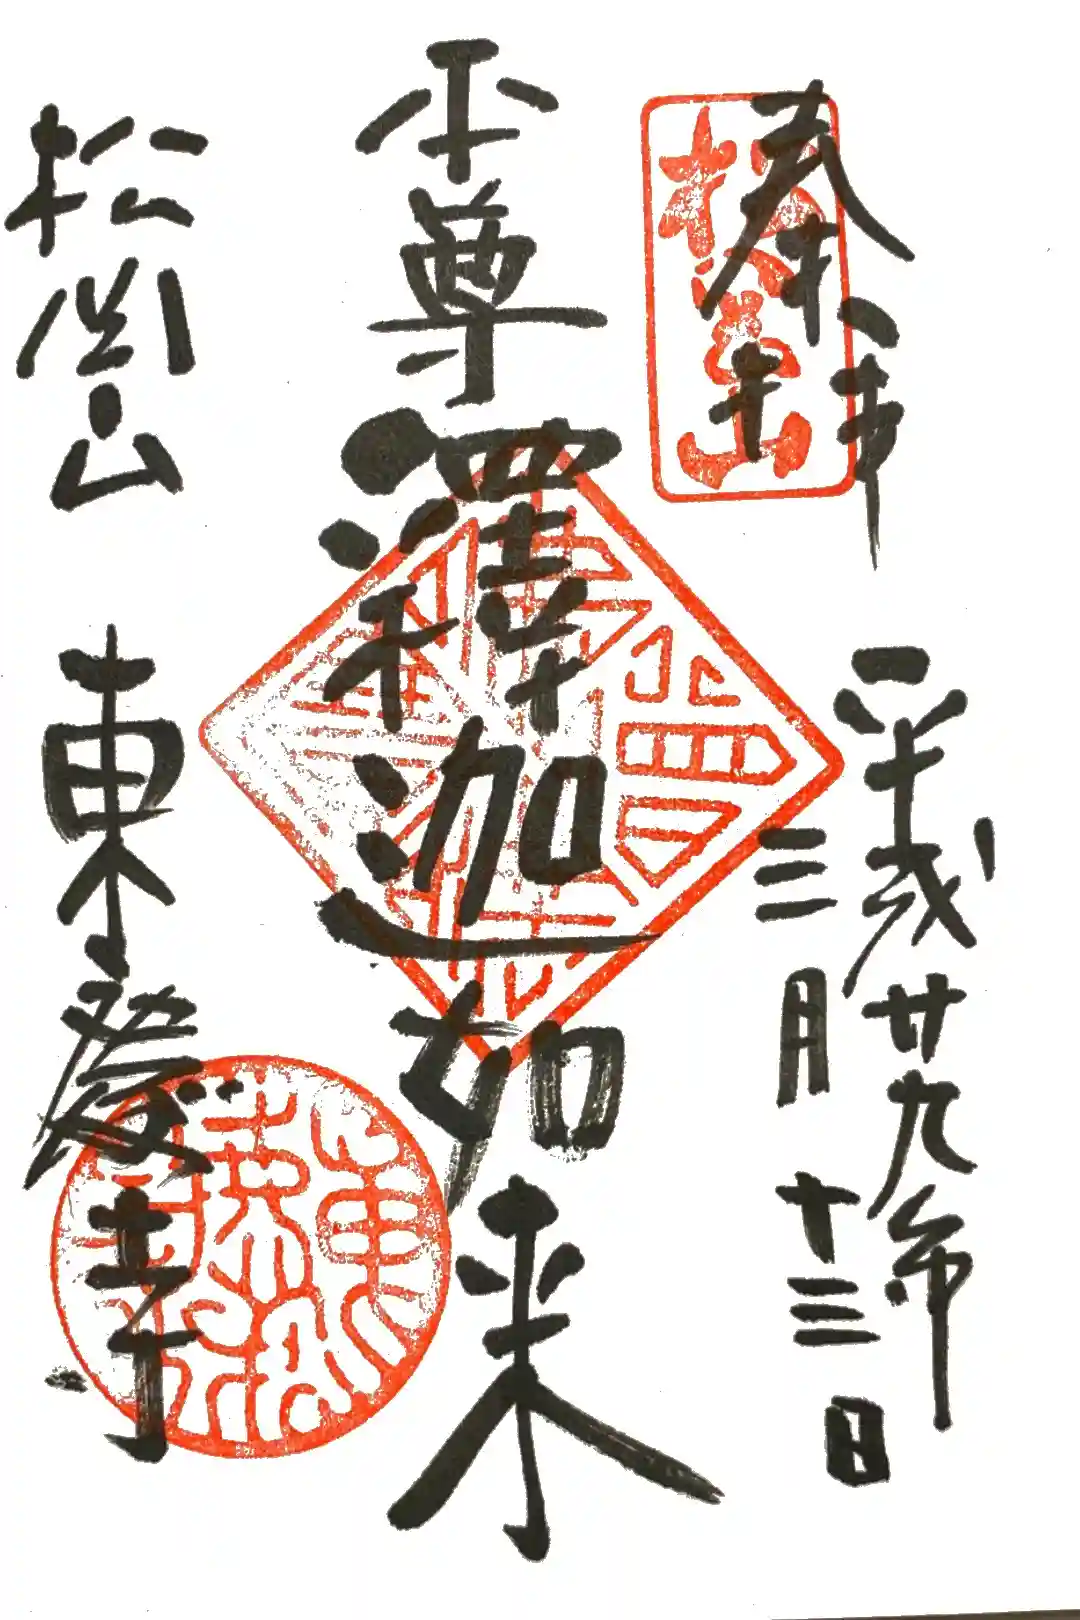 奉拝
平成廿九年
三月十三日
本尊
釋迦如来
松岡山
東慶寺
松岡山